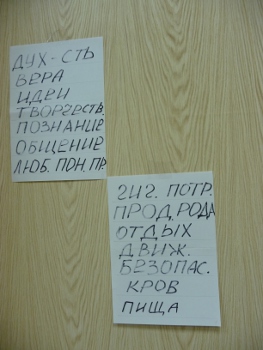 ДУХ-СТЬ
ВЕРА
ИДЕИ
ТВОРЧЕСТВ.
ПОЗНАНИЕ
ОБЩЕНИЕ
ЛЮБ. ПОН. ПР.
ГИГ. ПОТР.
ПРОД. РОДА
ОТДЫХ
ДВИЖ.
БЕЗОПАС.
КРОВ
ПИЩА